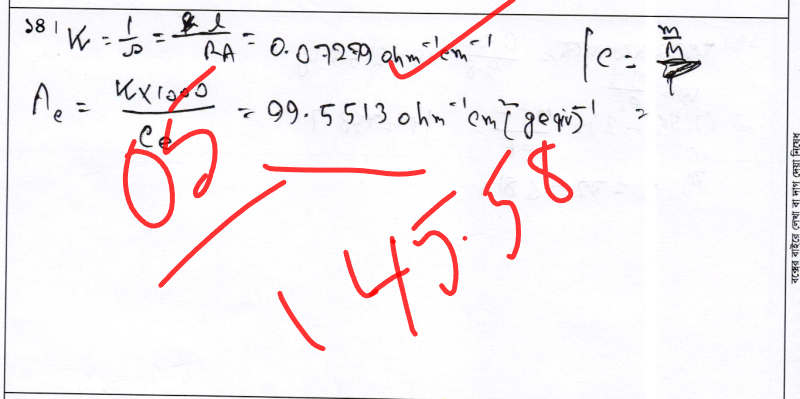 ১৪। K = 1/ρ = l/RA = 0.07299 ohm⁻¹cm⁻¹ | C = m/M
Λe = K×1000/Ce = 99.5513 ohm⁻¹cm² (geqiv)⁻¹ =
05
145.58
বক্সের বাইরে লেখা বা দাগ দেয়া নিষেধ